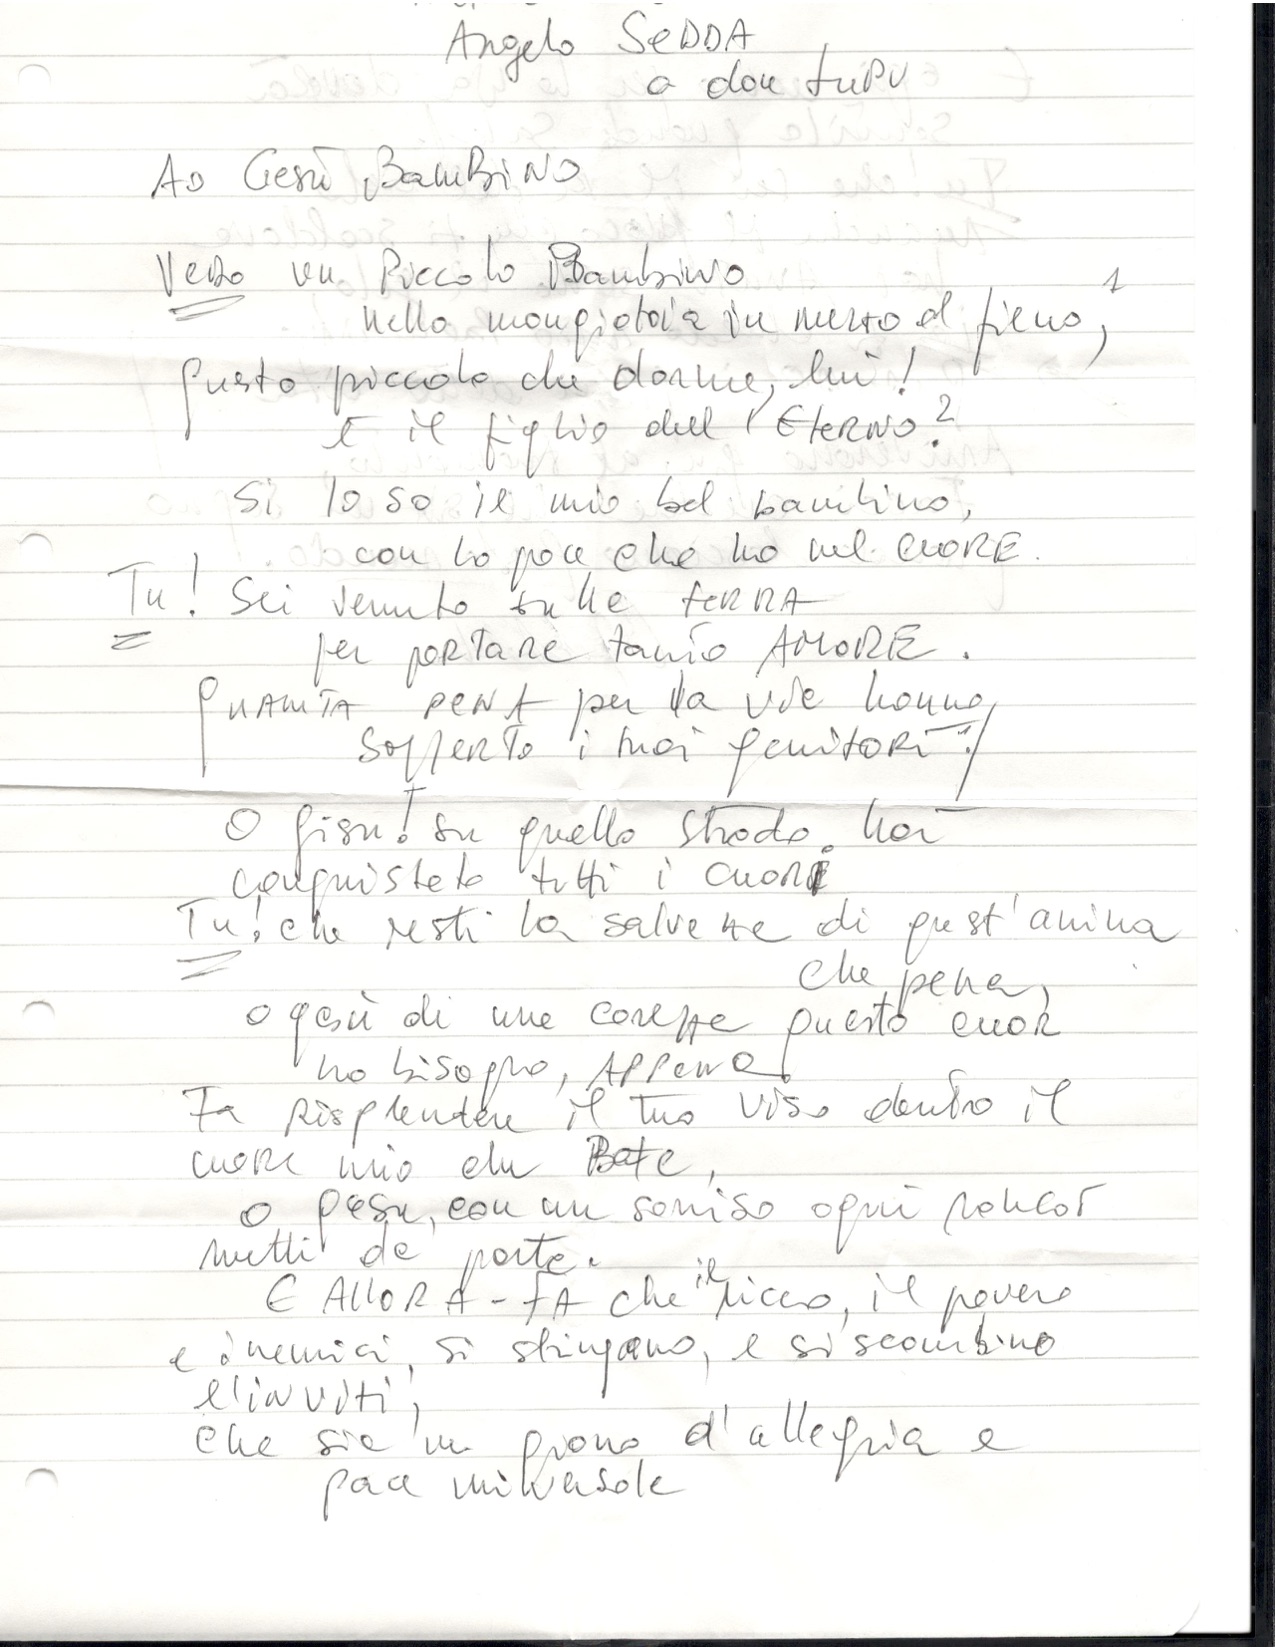 Angelo SEDDA
a don
AD Gesù BAMBINO
Vedo un Piccolo Bambino
1
nella mangiatoia in mezzo al fieno,
questo piccolo che dorme, lui!
È il figlio dell'ETERNO?
Si lo so il mio bel bambino,
con la pace che ho nel CUORE.
Tu! Sei venuto sulle TERRA
per PORTARE tanto AMORE.
QUANTA PENA per la via hanno
SOFFERTO i tuoi genitori!
O Gisu! su quella strada hai
conquistato tutti i CUORI
Tu! che resti la salvezze di quest'anima
che pena,
o gesù di una carezza questo cuor
ha bisogno, APPENA
Fa RISplendere il tuo viso dentro il
cuore mio che Bate,
o gesu, con un sorriso ogni rancor
metti da parte.
E ALLORA - FA che il ricco, il povero
e i nemici, si stringano, e si scambino
l'inviti,
che sia un giono d'allegria e
pace universale